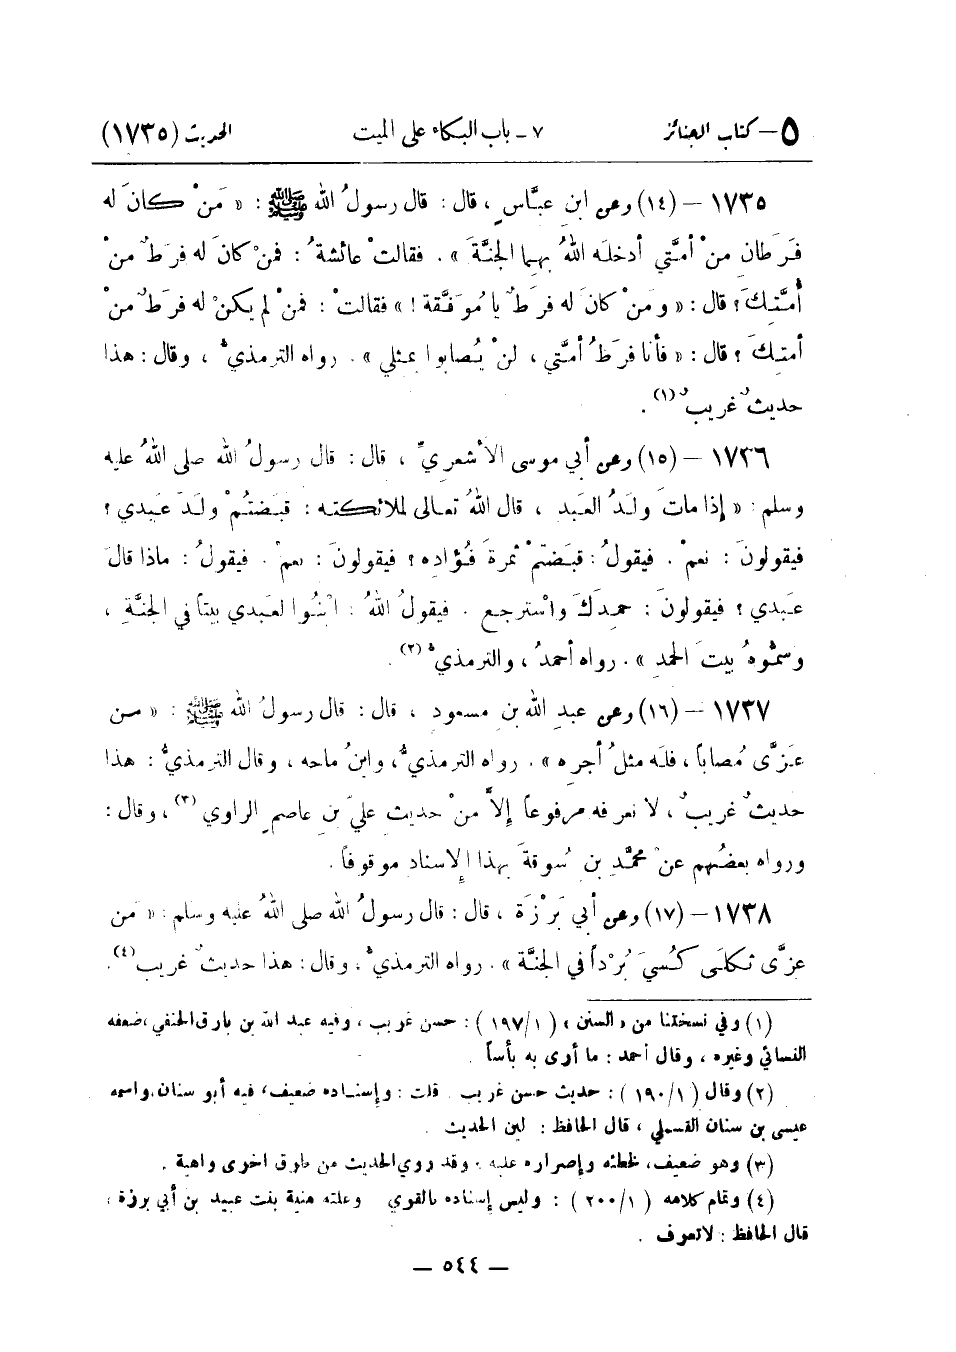 ٥ – كتاب الجنائز ٧ – باب البكاء على الميت الحديث (١٧٣٥)
١٧٣٥ – (١٤) وعن ابنِ عبَّاسٍ ، قال : قال رسولُ الله ﷺ : « مَنْ كانَ له
فَرَطانِ منْ أمَّتي أدخلَه اللهُ بهما الجنَّةَ » . فقالتْ عائشةُ : فمنْ كانَ له فرَطٌ منْ
أُمَّتِكَ ؟ قال : « ومَنْ كانَ له فرَطٌ يا مُوَفَّقة ! » فقالتْ : فمنْ لم يكنْ له فرَطٌ منْ
أمتِكَ ؟ قال : « فأنا فرَطُ أمَّتي ، لنْ يُصابوا بمثلي » . رواه الترمذيُّ ، وقال : هذا
حديثٌ غريبٌ (١) .
١٧٣٦ – (١٥) وعن أبي موسى الأشعريِّ ، قال : قال رسولُ الله صلى اللهُ عليه
وسلم : « إذا ماتَ ولَدُ العَبدِ ، قال اللهُ تعالى لملائكتِه : قبَضتُمْ ولَدَ عَبدي ؟
فيقولونَ : نعمْ . فيقولُ : قبَضتمْ ثمرةَ فُؤادِه ؟ فيقولونَ : نعمْ . فيقولُ : ماذا قالَ
عَبدي ؟ فيقولونَ : حمِدَكَ واسْترجع . فيقولُ اللهُ : ابْنُوا لعَبدي بيتاً في الجنَّةِ ،
وسمُّوهُ بيتَ الحمدِ » . رواه أحمدُ ، والترمذيُّ (٢) .
١٧٣٧ – (١٦) وعن عبدِ الله بنِ مسعودٍ ، قال : قال رسولُ الله ﷺ : « مَن
عَزَّى مُصاباً ، فلَه مثلُ أجرِه » . رواه الترمذيُّ ، وابنُ ماجه ، وقال الترمذيُّ : هذا
حديثٌ غريبٌ ، لا نعرفه مرفوعاً إلاَّ منْ حديثِ عليِّ بنِ عاصمٍ الراوي (٣) ، وقال :
ورواه بعضُهم عنْ محمَّدِ بنِ سُوقةَ بهذا الإِسناد موقوفاً .
١٧٣٨ – (١٧) وعن أبي بَرْزَةَ ، قال : قال رسولُ الله صلى اللهُ عليه وسلم : « مَن
عزَّى ثكلَى كُسيَ بُرْداً في الجنَّة » . رواه الترمذيُّ ، وقال : هذا حديثٌ غريب (٤) .
(١) وفي نسختنا من « السنن » (١/١٩٧) : حسن غريب ، وفيه عبد الله بن بارق الحنفي ، ضعفه
النسائي وغيره ، وقال أحمد : ما أرى به بأساً .
(٢) وقال (١/١٩٠) : حديث حسن غريب . قلت : وإسناده ضعيف ، فيه أبو سنان ، واسمه
عيسى بن سنان القسملي ، قال الحافظ : لين الحديث .
(٣) وهو ضعيف ، لخطئه وإصراره عليه ، وقد روي الحديث من طرق اخرى واهية .
(٤) وتمام كلامه (١/٢٠٠) : وليس إسناده بالقوي وعلته منية بنت عبيد بن أبي برزة ،
قال الحافظ : لا تعرف .
— ٥٤٤ —